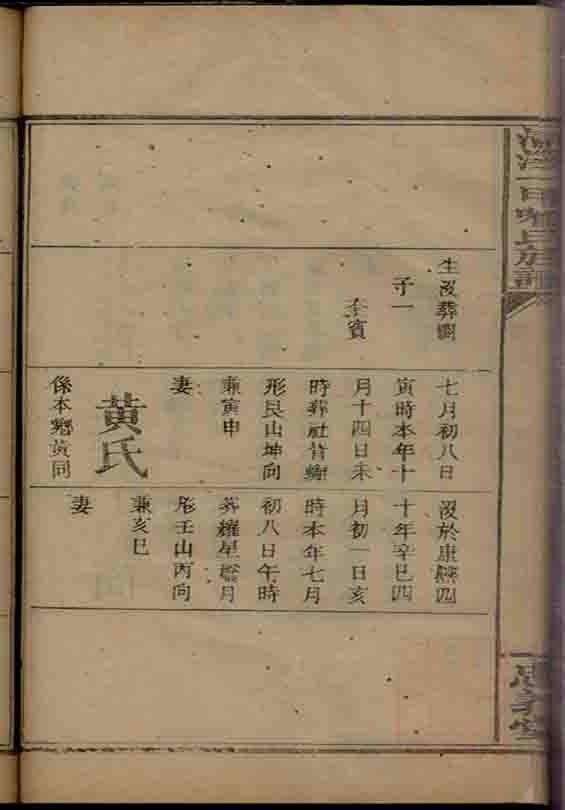 氏族譜
生沒葬闕
子一
賓
七月初八日
寅時本年十
月十四日未
時葬社背
形艮山坤向
兼寅申
妻
黃氏
係本鄉黃同
沒於康熙四
十年辛巳四
月初一日亥
時本年七月
初八日午時
葬星月
形壬山丙向
兼亥巳
妻
堂